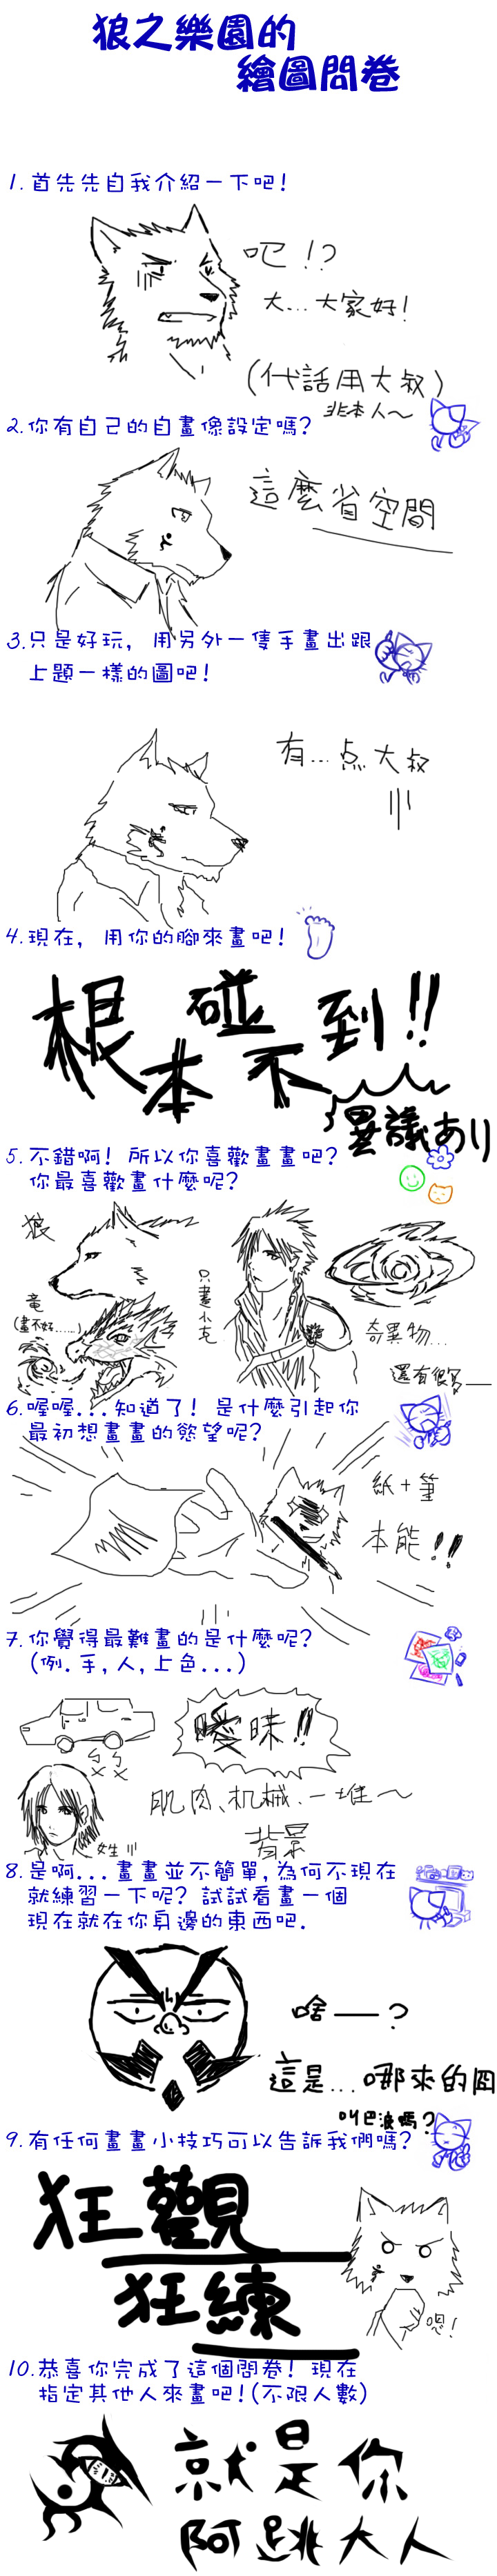 狼之樂園的
繪圖問卷
1.首先先自我介紹一下吧!
吧!?
大...大家好!
(代話用大叔)
非本人~
2.你有自己的自畫像設定嗎?
這麼省空間
3.只是好玩, 用另外一隻手畫出跟
上題一樣的圖吧!
有...点大叔
4.現在, 用你的腳來畫吧!
根本碰不到!!
異議あり
5.不錯啊! 所以你喜歡畫畫吧?
你最喜歡畫什麼呢?
狼
竜
(畫不好......)
只畫小克
奇異物...
還有很多—
6.喔喔...知道了! 是什麼引起你
最初想畫畫的慾望呢?
紙+筆
本能!!
7.你覺得最難畫的是什麼呢?
(例.手,人,上色...)
ㄅㄆ ㄅㄆ
曖昧!!
肌肉、机械、一堆~
背景
8.是啊...畫畫並不簡單,為何不現在
就練習一下呢? 試試看畫一個
現在就在你身邊的東西吧.
啥——?
這是...哪來的囧
叫巴淚嗎?
9.有任何畫畫小技巧可以告訴我們嗎?
狂觀
狂練
嗯!
10.恭喜你完成了這個問卷! 現在
指定其他人來畫吧!(不限人數)
就是你
阿跳大人